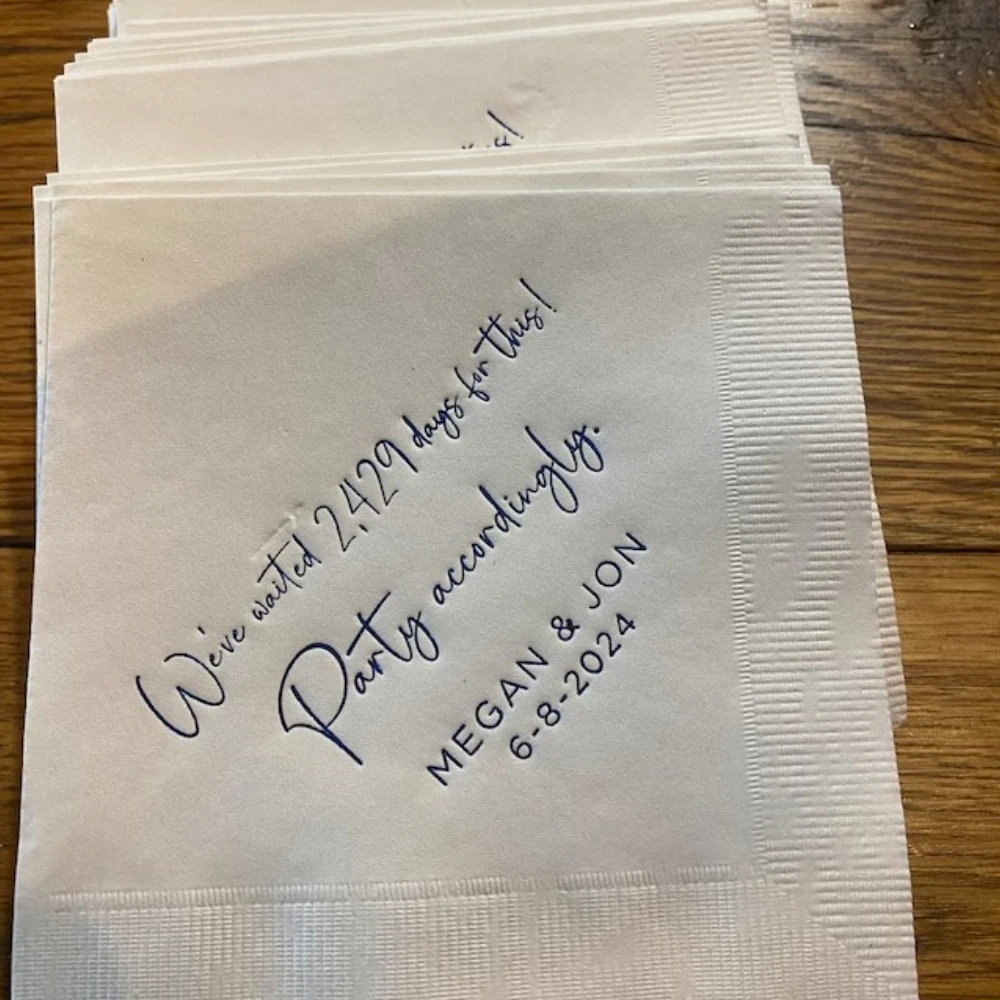 We've waited 2,429 days for this!
Party accordingly.
MEGAN & JON
6-8-2024